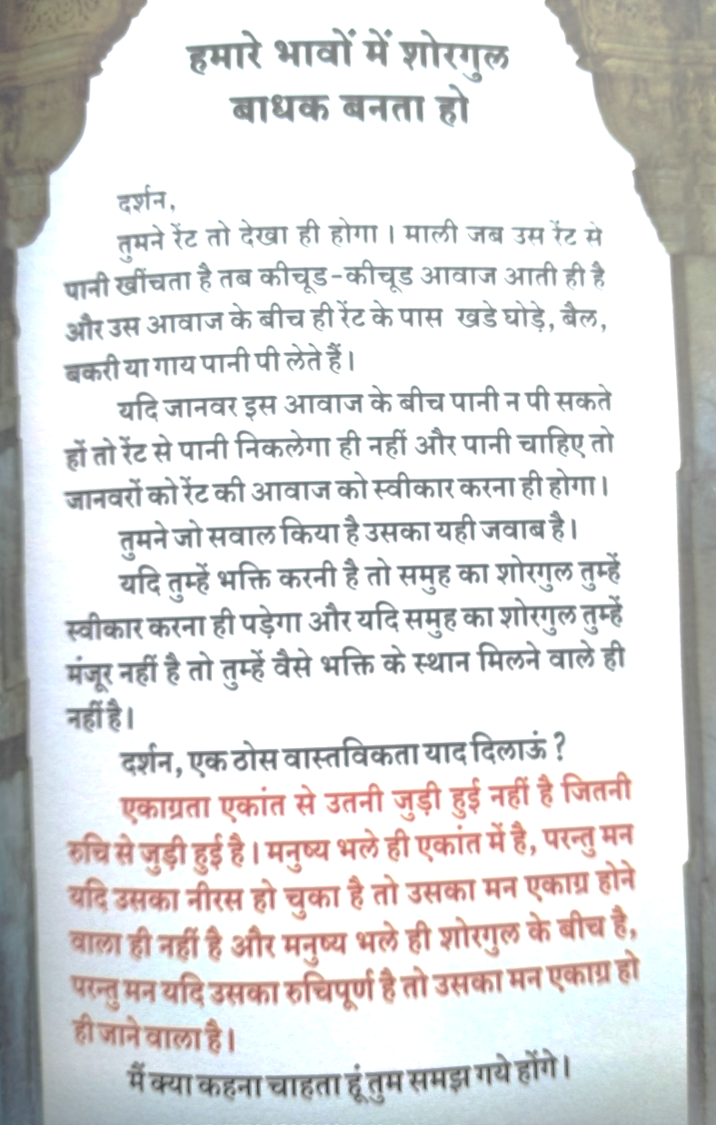 हमारे भावों में शोरगुल
बाधक बनता हो
दर्शन,
तुमने रेंट तो देखा ही होगा । माली जब उस रेंट से
पानी खींचता है तब कीचूड-कीचूड आवाज आती ही है
और उस आवाज के बीच ही रेंट के पास खडे घोड़े, बैल,
बकरी या गाय पानी पी लेते हैं।
यदि जानवर इस आवाज के बीच पानी न पी सकते
हों तो रेंट से पानी निकलेगा ही नहीं और पानी चाहिए तो
जानवरों को रेंट की आवाज को स्वीकार करना ही होगा।
तुमने जो सवाल किया है उसका यही जवाब है।
यदि तुम्हें भक्ति करनी है तो समुह का शोरगुल तुम्हें
स्वीकार करना ही पड़ेगा और यदि समुह का शोरगुल तुम्हें
मंजूर नहीं है तो तुम्हें वैसे भक्ति के स्थान मिलने वाले ही
नहीं है।
दर्शन, एक ठोस वास्तविकता याद दिलाऊं ?
एकाग्रता एकांत से उतनी जुड़ी हुई नहीं है जितनी
रुचि से जुड़ी हुई है। मनुष्य भले ही एकांत में है, परन्तु मन
यदि उसका नीरस हो चुका है तो उसका मन एकाग्र होने
वाला ही नहीं है और मनुष्य भले ही शोरगुल के बीच है,
परन्तु मन यदि उसका रुचिपूर्ण है तो उसका मन एकाग्र हो
ही जाने वाला है।
मैं क्या कहना चाहता हूं तुम समझ गये होंगे।